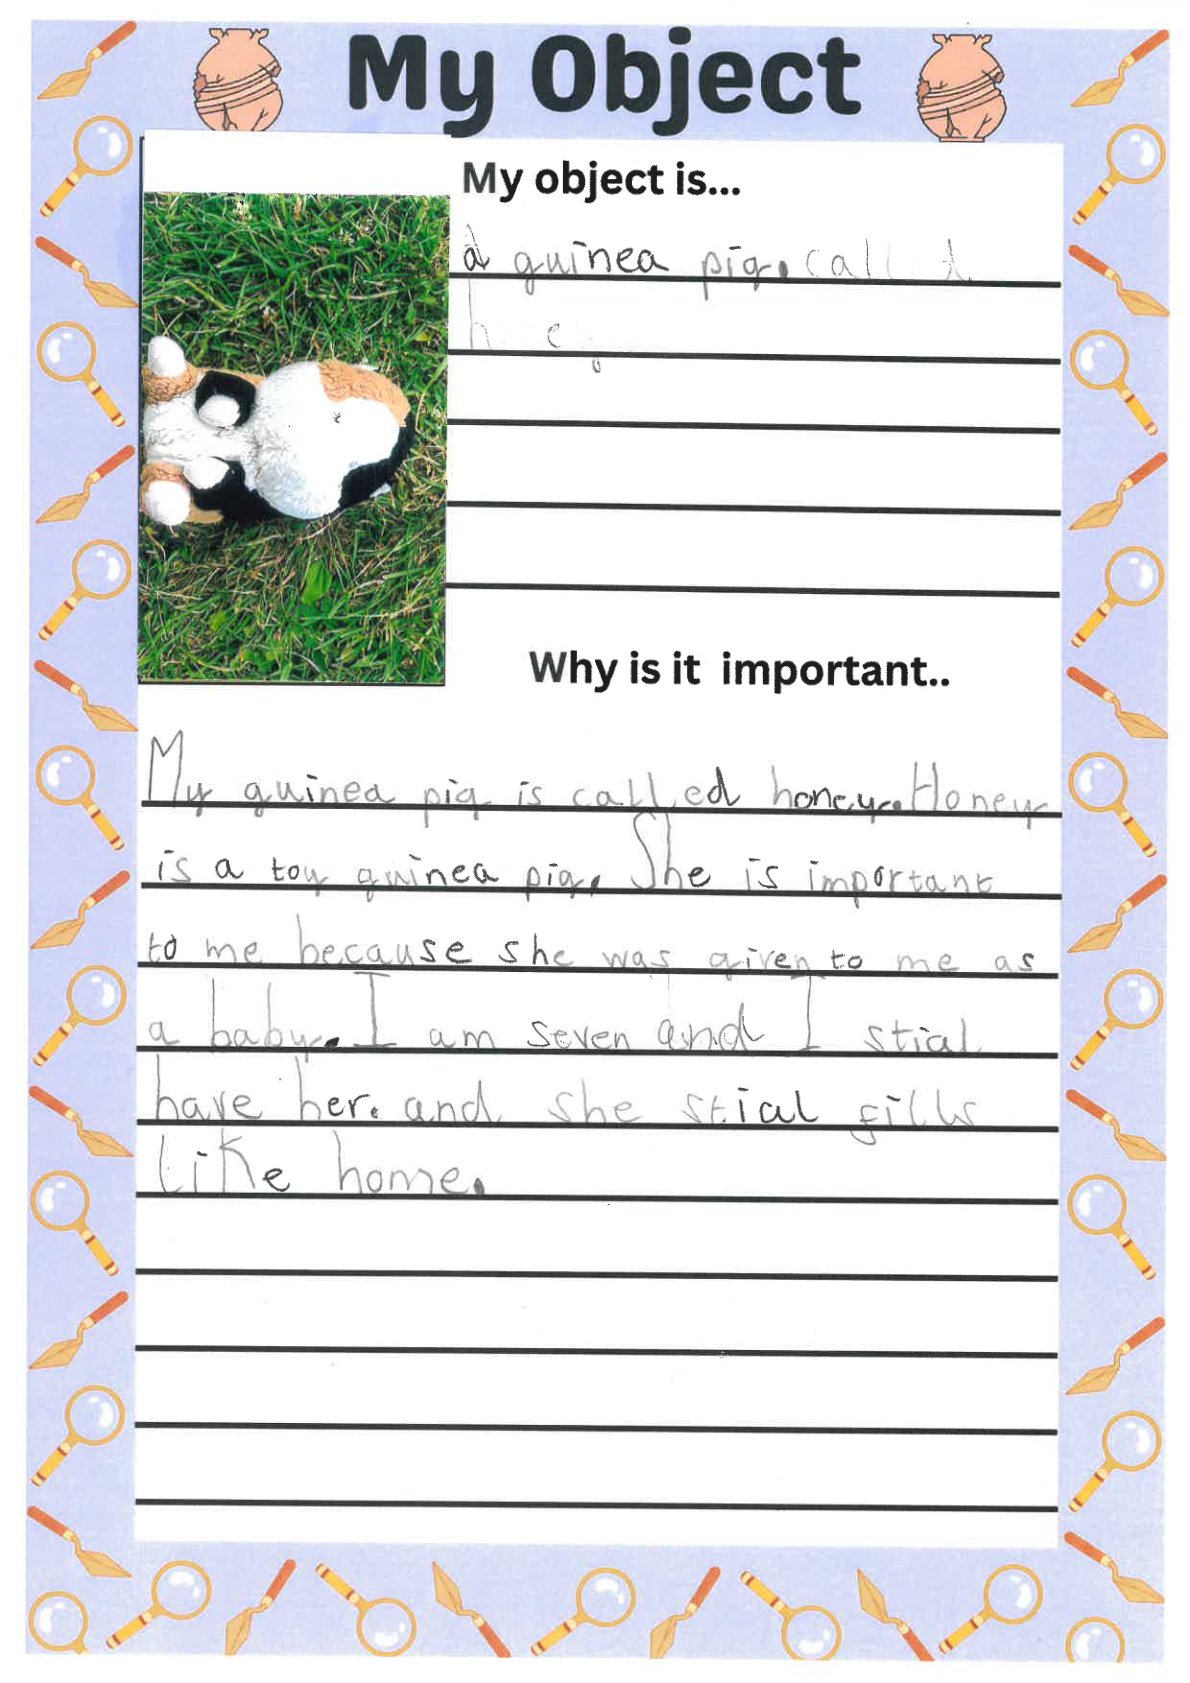 My Object
My object is...
a guinea pig. called
My guinea pig is called honey. Honey
is a toy guinea pig. She is important
to me because she was given to me as
a baby. I am seven and I stial
have her. and she stial fills
like home.
Why is it important..